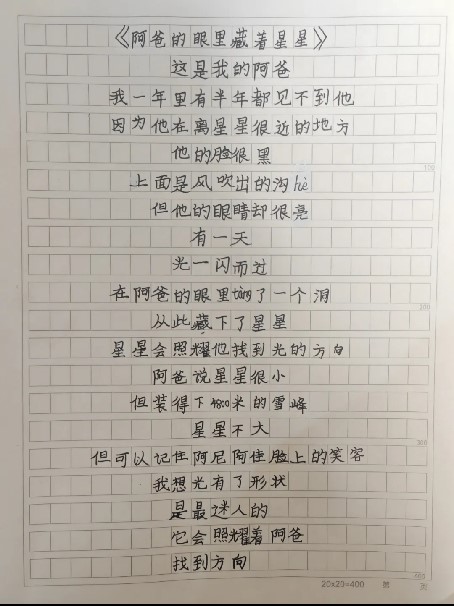 《阿爸的眼里藏着星星》
这是我的阿爸
我一年里有半年都见不到他
因为他在离星星很近的地方
他的脸很黑
上面是风吹出的沟hè
但他的眼睛却很亮
有一天
光一闪而过
在阿爸的眼里tàng了一个洞
从此藏下了星星
星星会照耀他找到光的方向
阿爸说星星很小
但装得下4800米的雪峰
星星不大
但可以记住阿尼阿佳脸上的笑容
我想光有了形状
是最迷人的
它会照耀着阿爸
找到方向
20×20=400